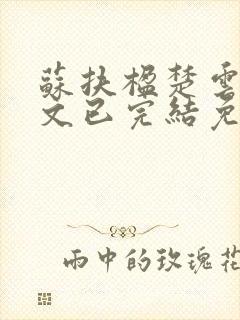 蘇扶楹楚雲
文已完結免
雨中的玫瑰花